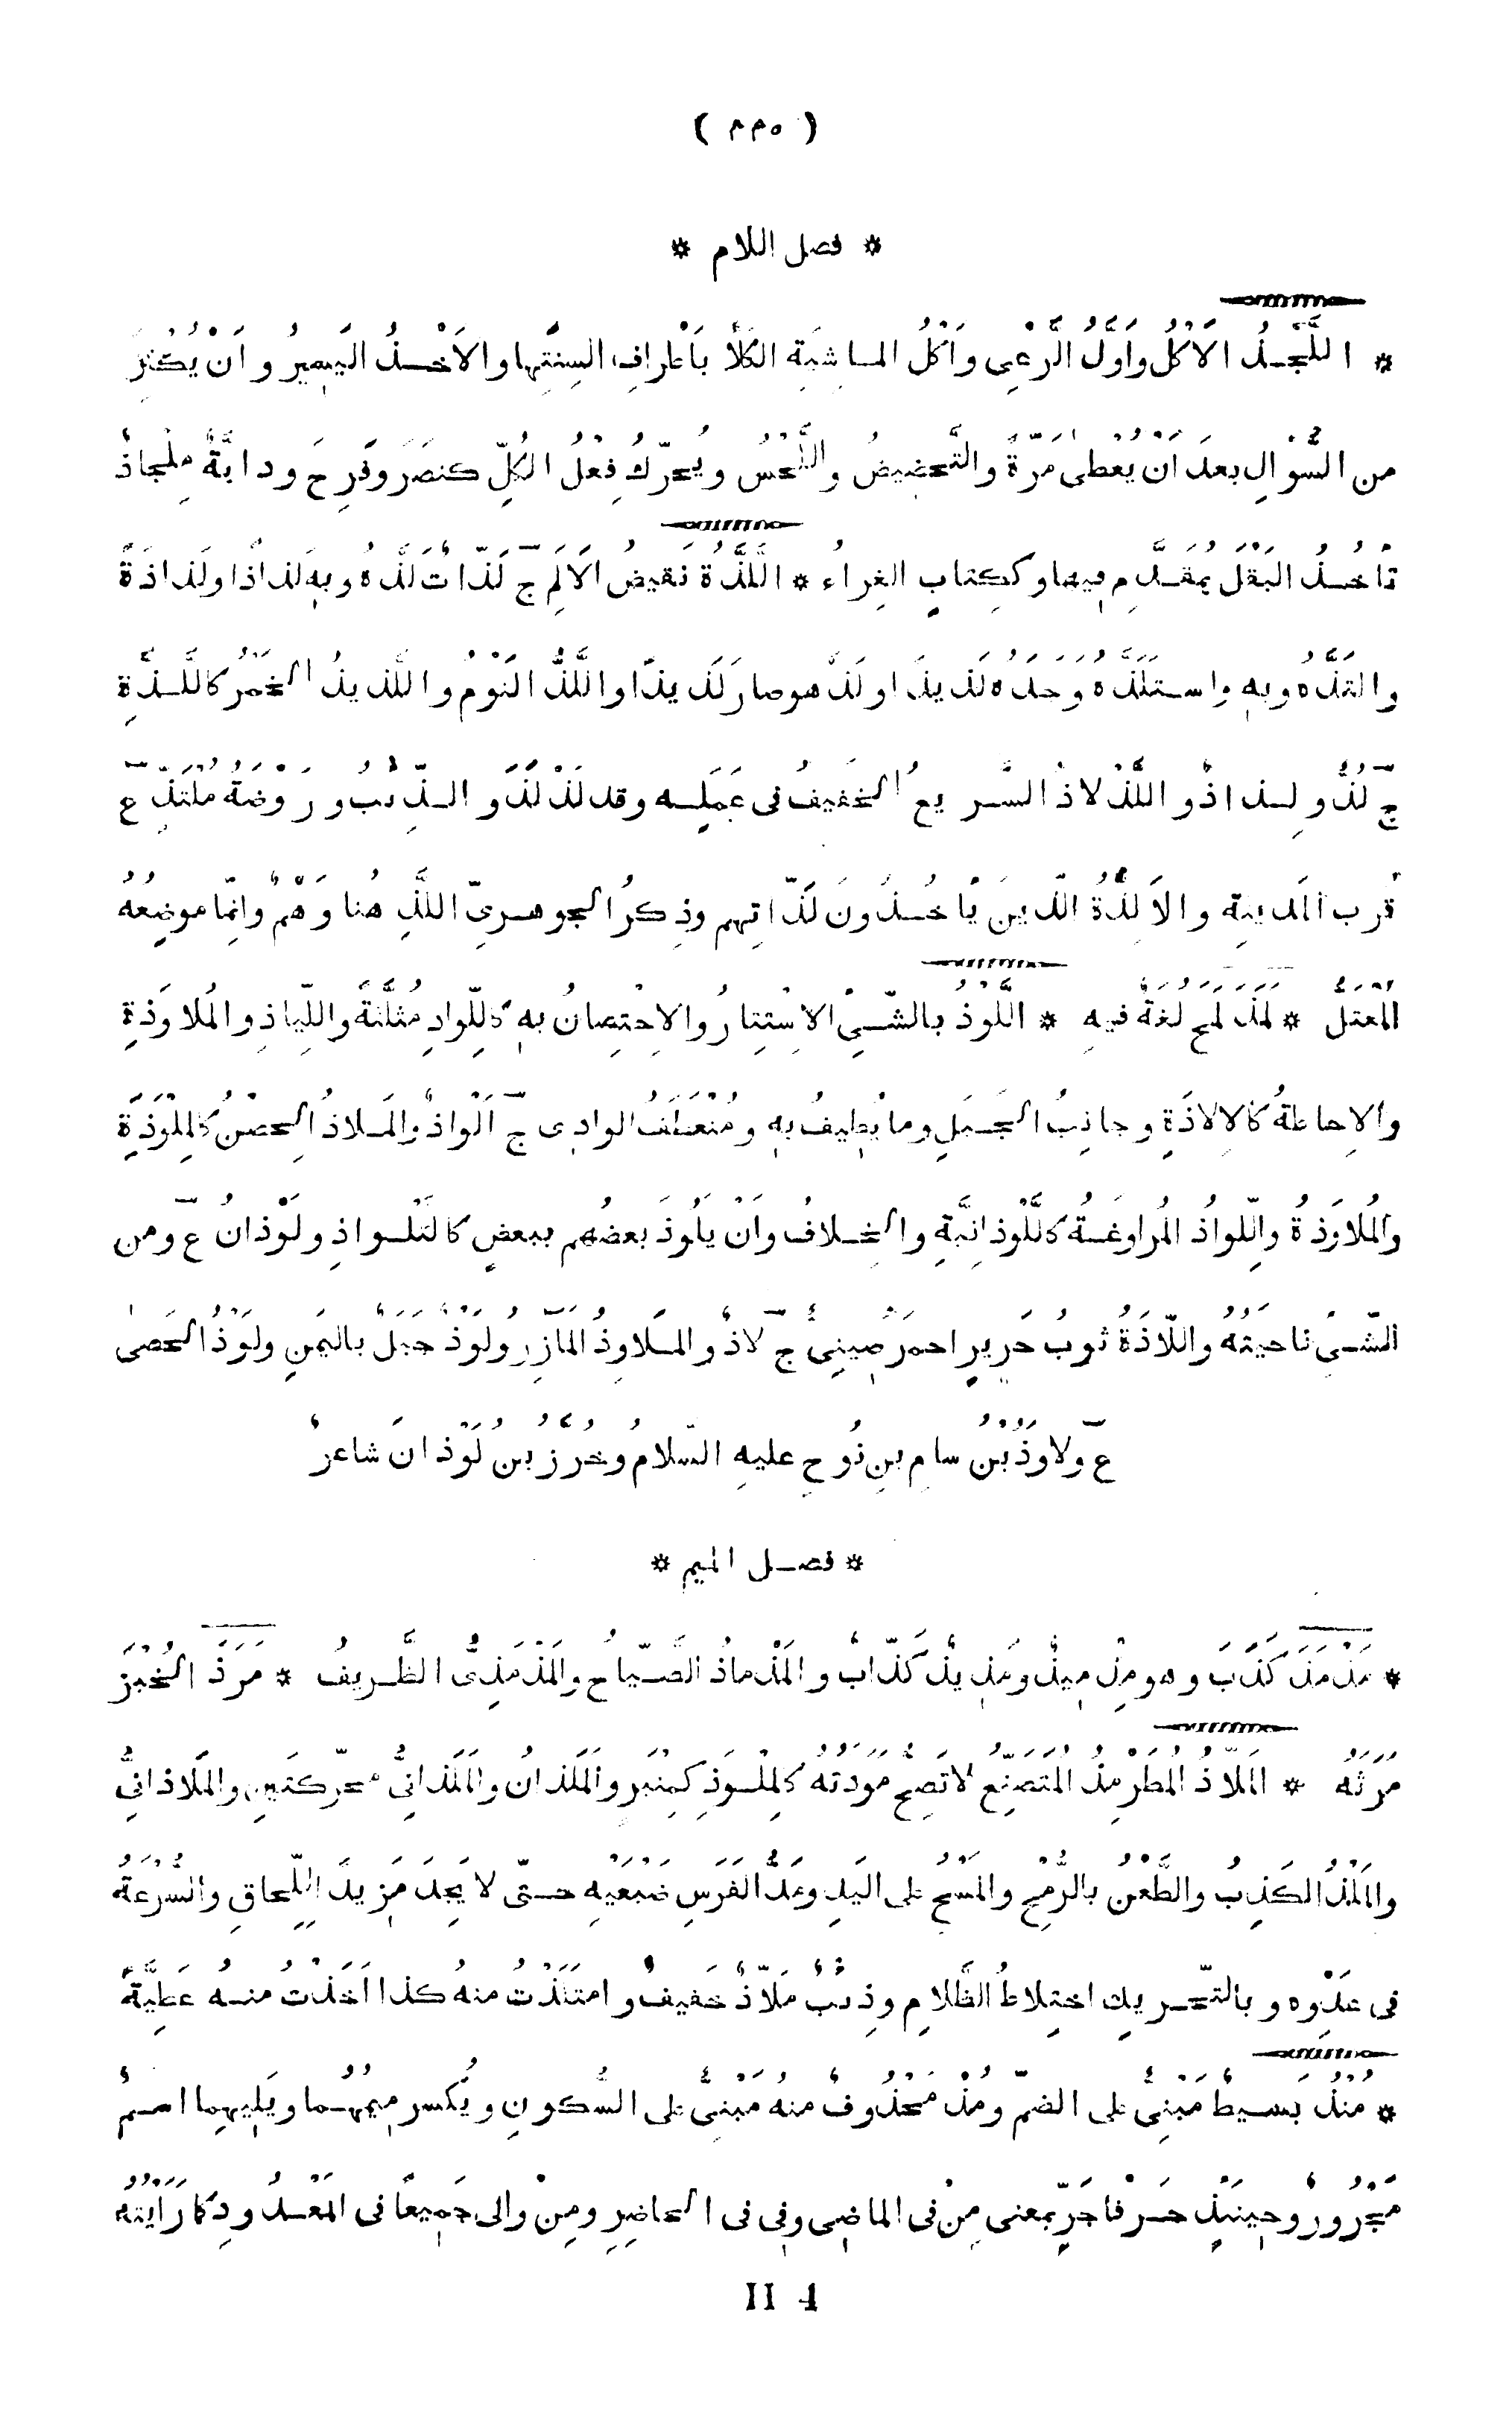 ( ٥٣٣ )
* فصل اللام *
* اللَّجْذُ الاَكْلُ واَوَّلُ الرَّعْىِ واَكْلُ الماشِيَةِ الكَلَأَ بأَطْرافِ السِنَتِها والاَخْذُ اليَسِيرُ واَنْ يُكْثِرَ
من السُّوَالِ بعدَ اَنْ يُعْطى مَرّةً والتَّحْضِيضُ واللَّحْسُ ويُحرّكُ فِعْلُ الكُلِّ كنصَرَ وفَرِحَ ودابَّةٌ مِلْجاذٌ
تأخُذُ البَقْلَ بمُقَدَّمِ فِيها وككِتابٍ الغِراءُ * اللَّذَّةُ نَقِيضُ الاَلَمِ ج لَذّاتٌ لَذَّهُ وبه لَذاذًا ولَذاذَةً
والتَذَّهُ وبه واستَلَذَّهُ وجَدَهُ لَذيذًا ولَذَّ هو صارَ لَذيذًا واللَّذُّ النَوْمُ واللَّذيذُ الخَمْرُ كاللَّذَّةِ
ج لُذٌّ ولِذاذٌ واللَّذْلاذُ السَّريعُ الخَفيفُ فى عَمَلِه وقد لَذْلَذَ والذِّئْبُ ورَوْضَةُ مُلْتَذّ ع
قُربَ المَدينةِ والاَلِذَّةُ الّذينَ يَأخُذُونَ لَذّاتِهم وذِكرُ الجوهرىّ اللَّذِ هُنا وَهْمٌ وانّما موضِعُهُ
المعتلّ * لمَذَ لمج لُغَةٌ فيه * اللَّوْذُ بالشّىْءِ الاِسْتِتارُ والاحْتِصانُ به كاللِّواذِ مُثَلَّثَةً واللِّياذِ والمُلاوَذةِ
والاِحاطَةُ كالاِلاذَةِ وجانِبُ الجَبَلِ وما يُطيفُ به ومُنْعَطَفُ الوادِى ج اَلْواذٌ والمَلاذُ الحِصْنُ كالمِلْوَذَةِ
والمُلاوَذةُ واللِّواذُ المُراوغَةُ كاللَّوْذانِيَّةِ والخِلافُ واَنْ يَلُوذَ بعضُهم ببعضٍ كالتَلْواذِ ولَوْذانُ ع ومن
الشّىْءِ ناحيتُهُ واللّاذَةُ ثوبُ حَريرٍ احمرُ صِينِىٌّ ج لاذٌ والمَلاوِذُ المَآزِرُ ولَوْذٌ جبَلٌ باليَمَنِ ولَوْذُ الحَصى
ع ولاوَذُ بْنُ سامِ بنِ نُوحٍ عليهِ السّلامُ وخُرَّزُ بْن لَوْذانَ شاعرٌ
* فصل الميم *
* مَذْمَذَ كَذَبَ وهو مِذْمِيذٌ ومِذيذٌ كَذّابٌ والمَذْماذُ الصَّيّاحُ والمَذْمَذِىُّ الظَّريفُ * مَرَذَ الخُبْزَ
مَرَثَهُ * المَلّاذُ المُطَرْمِذُ المُتَصَنِّعُ لا تَصِحُّ مَوَدّتُهُ كالمِلْوَذِ كمِنْبَرٍ والمَلَذانُ والمَلَذانِىُّ محرّكتَينِ والمَلاذانِىُّ
والمَلْذُ الكَذِبُ والطَّعْنُ بالرُّمْحِ والمَسْحُ على اليَدِ ومَدُّ الفَرَسِ ضَبْعَيْهِ حتّى لا يَجِدَ مَزيدًا لِلِّحاقِ والسُّرْعَةُ
فى عَدْوِه وبالتّحريكِ اختِلاطُ الظَّلامِ وذِئبٌ مَلّاذٌ خَفيفٌ وامتَلَذْتُ منهُ كذا اَخَذْتُ منهُ عَطِيَّةً
* مُنْذُ بَسيطٌ مَبْنِىٌّ على الضّمّ ومُذْ مَحْذُوفٌ منهُ مَبْنِىٌّ على السُّكونِ ويُكسر مِيمُهُما ويَلِيهِما اسمٌ
مَجْرُورٌ وحِينَئِذٍ حَرْفا جَرٍّ بمعنى مِنْ فى الماضِى وفِى فى الحاضِرِ ومِنْ والى جَمِيعًا فى المَعْدُودِ كما رَاَيْتُهُ
II 4